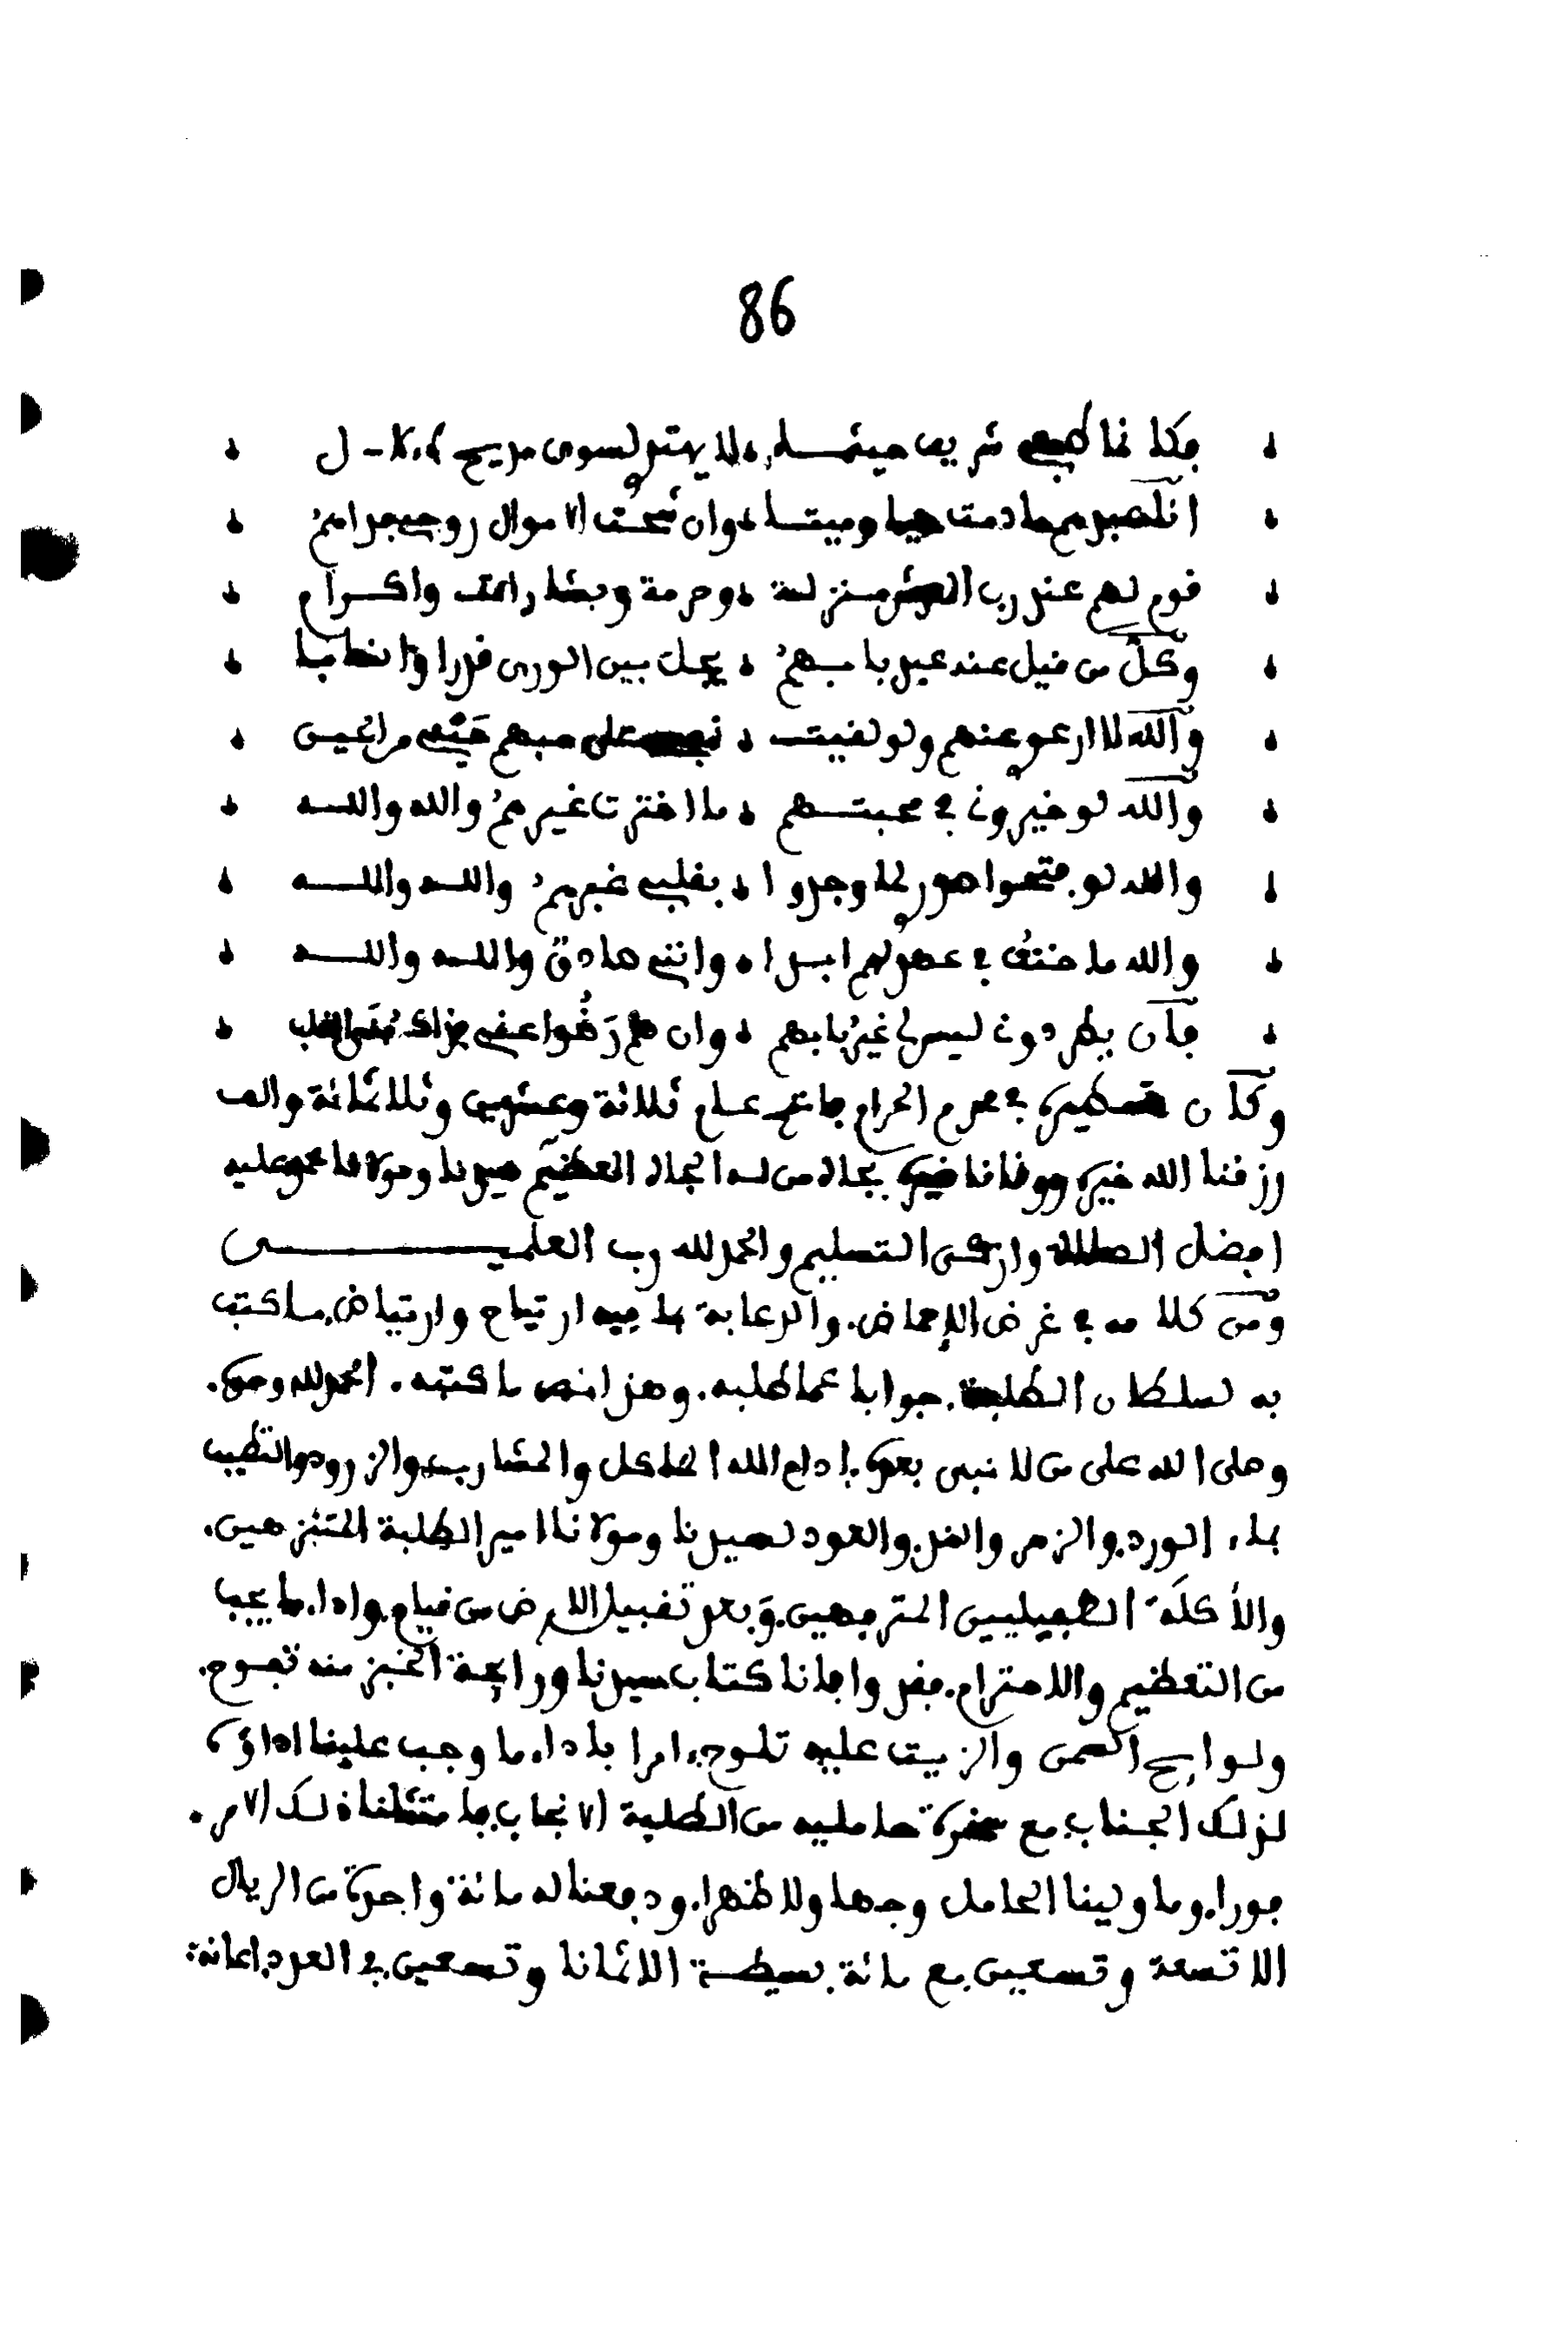 86
فكا نما طبعي شريف حيثما ولا يهتز لسوى مديح
انا عبدهم ما دمت حيا وميتا وان شحت الاموال روحي فداهم
قوم لهم عند رب العرش منزلة وحرمة وبشارات واكرام
وكل من قيل عنه عبد بابهم يجل بين الورى قدرا وانصابا
والله لا ارعو عنهم ولو لفيت على حبهم حتفي مراحين
والله لو خيروني في محبتهم ما اخترت غيرهم والله والله
والله لو فتحوا صدري لما وجدوا بقلبي غيرهم والله والله
والله ما خنت في عهدلهم ابدا وانني صادق والله والله
فان يطردوني ليس لي غير بابهم وان هم رضوا عني فذاك
وكان تسطيره في محرم الحرام فاتح عام ثلاثة وعشرين وثلاثمائة والف
رزقنا الله خيره ووقانا ضيره بجاه من له الجاه العظيم سيدنا ومولانا محمد عليه
افضل الصلاة وازكى التسليم والحمد لله رب العلمين
ومن كلامه في غرض الاحماض. والدعابة بما فيه ارتياح وارتياض. ما كتب
به لسلطان الطلبة. جوابا عما طلبه. وهذا نص ما كتبه. الحمد لله وحده.
وصلى الله على من لا نبي بعده. ادام الله الماكل والمشارب. والزرود والتطييب
بماء الورد. والزمر والند. والعود لسيدنا ومولانا امير الطلبة المتنزهين.
والأكلة الطفيليين المترفهين. وبعد تقبيل الارض من قيام. واداء ما يجب
من التعظيم والاحترام. فقد وافانا كتاب سيدنا ورايحة الخبز منه تفوح.
ولوايح السمن والزيت عليه تلوح. امرا باداء ما وجب علينا اداؤه
لذلك الجناب. مع سخرة حامليه من الطلبة الانجاب. فامتثلنا ذلك الامر.
فورا. وما ولينا الحامل وجها ولا ظهرا. ودفعنا له مائة واحدة من الريال
الا تسعة وتسعين. مع مائة بسيطة الا ثمانا وتسعين في العدد. اعانة